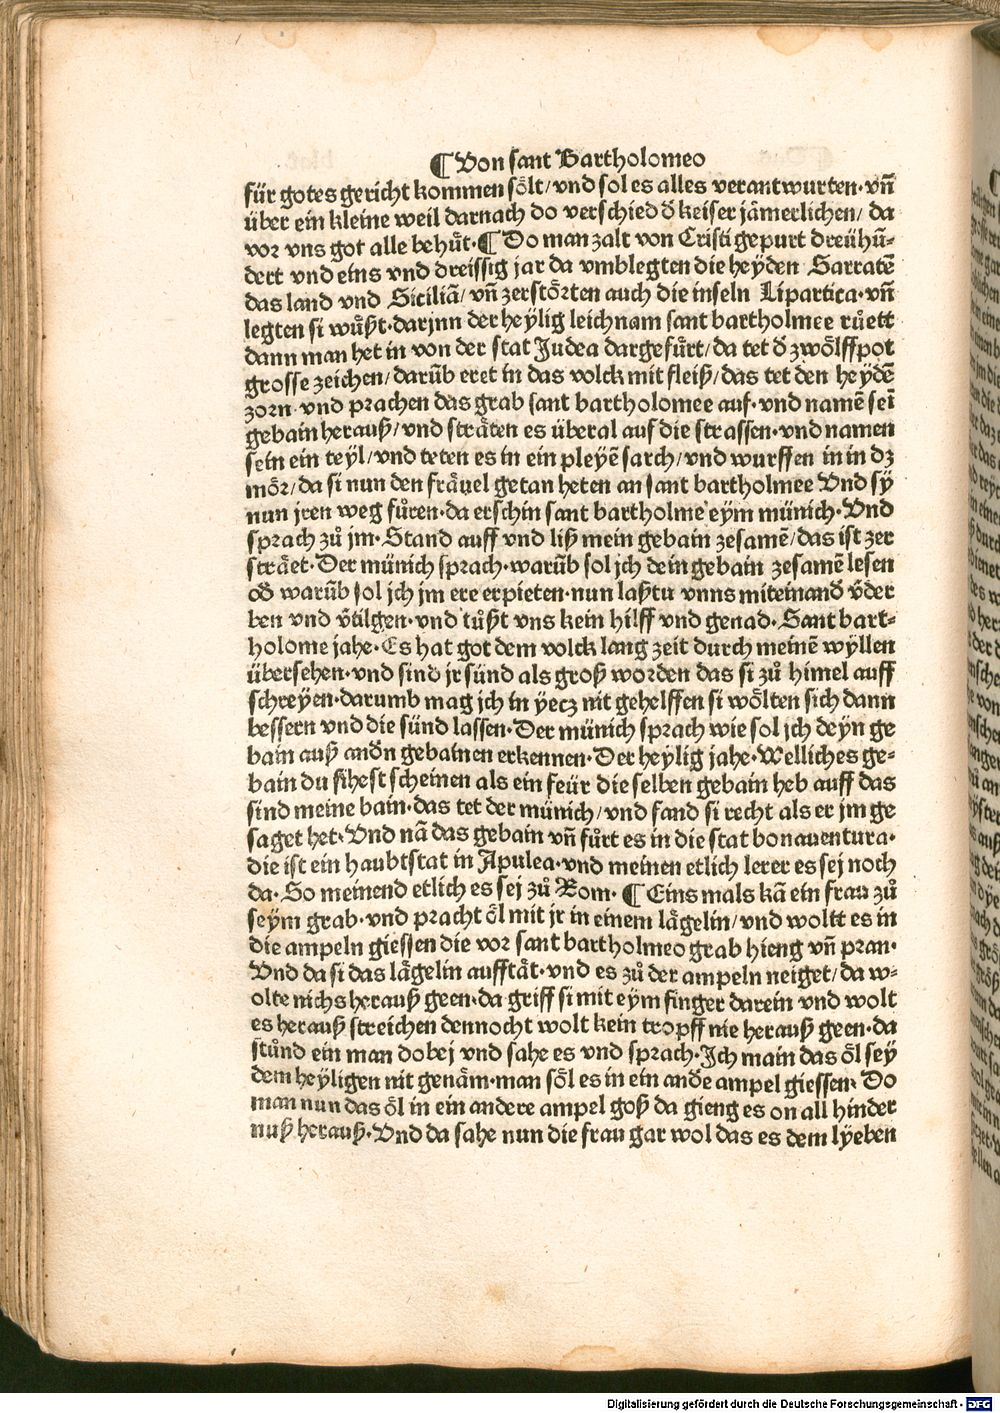 ¶ Von sant Bartholomeo
für gotes gericht kommen sölt/ vnd sol es alles verantwurten· vñ
über ein kleine weil darnach do verschied d̄ keiser jämerlichen/ da
vor vns got alle behüt· ¶ Do man zalt von Cristi gepurt dreühū-
dert vnd eins vnd dreissig jar da vmblegten die heyden Sarratē
das land vnd Siciliā/ vñ zerstörten auch die inseln Lipartica· vñ
legten si wůßt· darjnn der heylig leichnam sant bartholmee růett
dann man het in von der stat Judea dargefürt/ da tet d̄ zwölffpot
grosse zeichen/ darūb eret in das volck mit fleiß/ das tet den heydē
zorn· vnd prachen das grab sant bartholomee auf· vnd namē sei
gebain herauß/ vnd sträten es überal auf die strassen· vnd namen
sein ein teyl/ vnd teten es in ein pleyē sarch/ vnd wurffen in in dz
mör/ da si nun den fräuel getan heten an sant bartholmee Vnd sÿ
nun jren weg fůren· da erschin sant bartholme eym münich· Vnd
sprach zů jm· Stand auff vnd liß mein gebain zesamē/ das ist zer
sträet· Der münich sprach· warūb sol jch dein gebain zesamē lesen
od̄ warūb sol jch jm ere erpieten· nun laßtu vnns miteinand̄ v̄der
ben vnd v̄tilgen· vnd tůßt vns kein hilff vnd genad· Sant bart-
holome jahe· Es hat got dem volck lang zeit durch meinē wyllen
übersehen· vnd sind jr sünd als groß worden das si zů himel auff
schreyen· darumb mag jch in yecz nit gehelffen si wölten sich dann
bessern vnd die sünd lassen· Der münich sprach wie sol jch deyn ge
bain auß and̄n gebainen erkennen· Der heylig jahe· Welliches ge-
bain du sihest scheinen als ein feür die selben gebain heb auff das
sind meine bain· das tet der münich/ vnd fand si recht als er jm ge
saget het· Vnd nā das gebain vñ fůrt es in die stat bonauentura·
die ist ein haubtstat in Apulea· vnd meinen etlich lerer es sej noch
da· So meinend etlich es sej zů Rom· ¶ Eins mals kā ein frau zů
seym grab· vnd pracht öl mit jr in einem lägelin/ vnd woltt es in
die ampeln giessen die vor sant bartholmeo grab hieng vñ pran·
Vnd da si das lägelin aufftät· vnd es zů der ampeln neiget/ da w-
olte nichs herauß geen· da griff si mit eym finger darein vnd wolt
es herauß streichen dennocht wolt kein tropff nie herauß geen· da
stůnd ein man dobej vnd sahe es vnd sprach· Jch main das öl sey
dem heyligen nit genäm· man söl es in ein and̄e ampel giessen· Do
man nun das öl in ein andere ampel goß da gieng es on all hinder
nuß herauß· Vnd da sahe nun die frau gar wol das es dem lÿeben
Digitalisierung gefördert durch die Deutsche Forschungsgemeinschaft - DFG